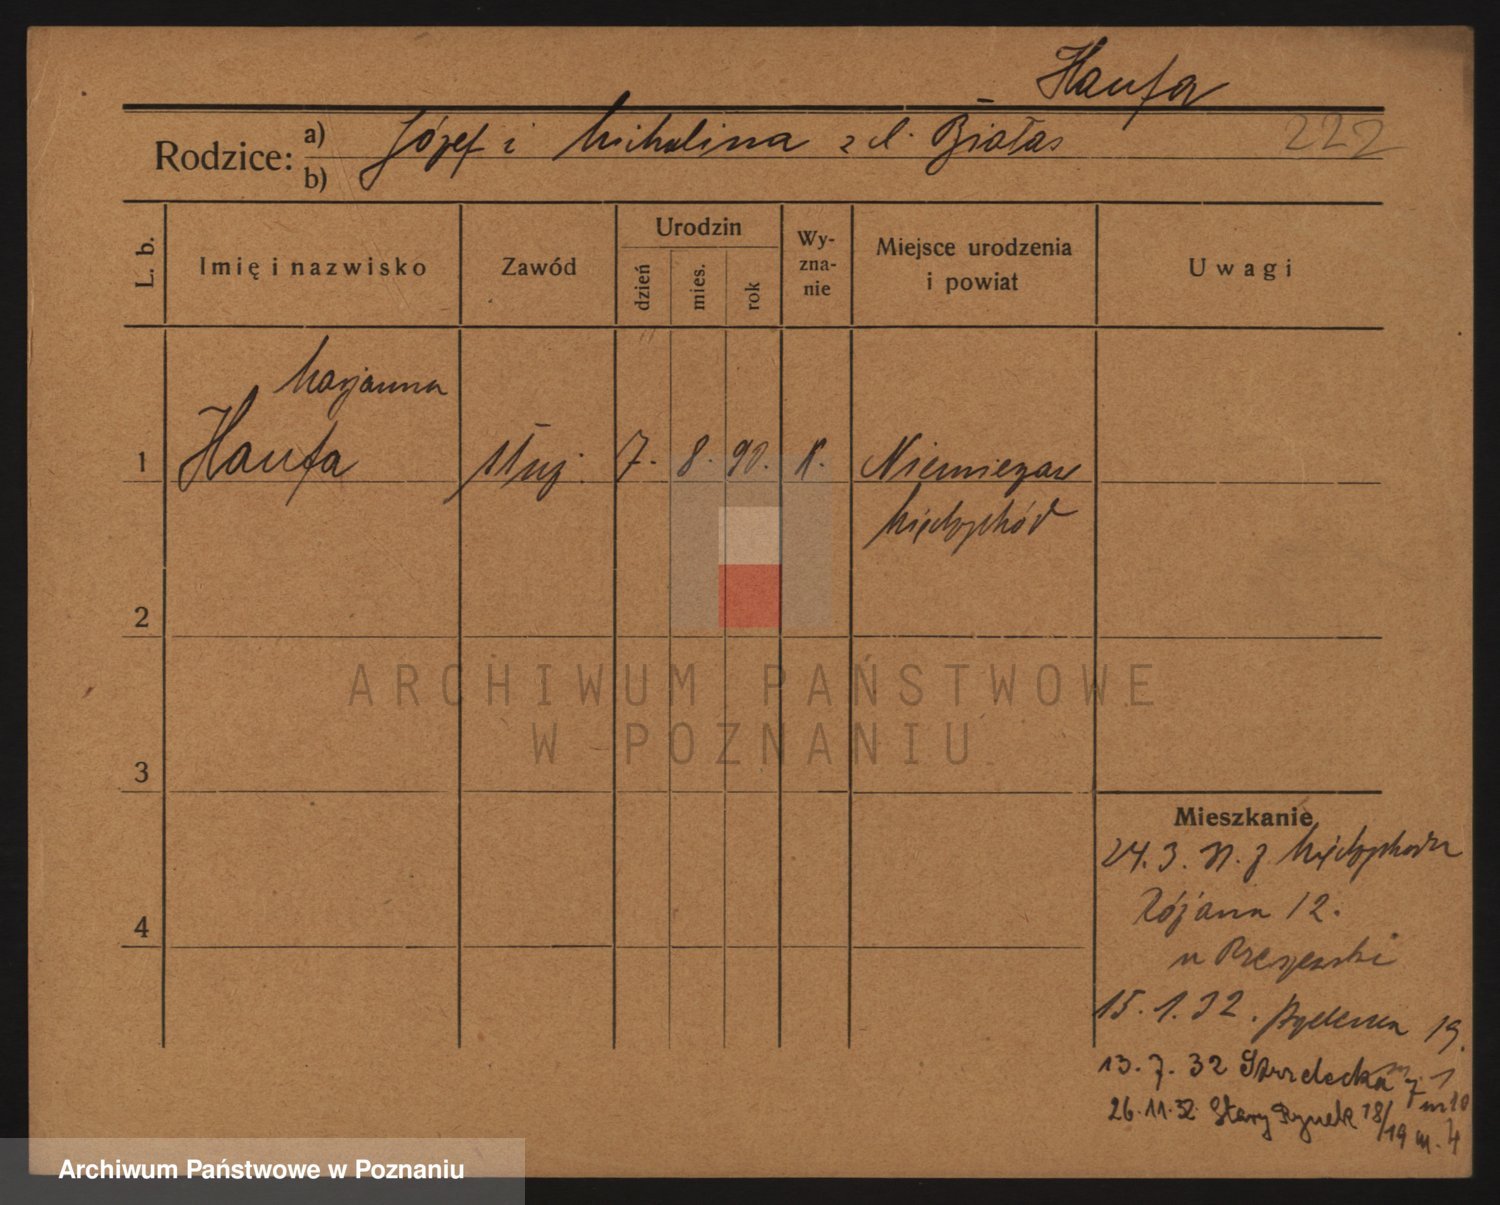 Haufa
Rodzice: a) Józef i Michalina z d. Białas
222
b)
L. b.
Imię i nazwisko
Zawód
Urodzin
dzień
mies.
rok
Wy-
zna-
nie
Miejsce urodzenia
i powiat
Uwagi
Marjanna
1 Haufa służ. 7. 8. 90. K.
Międzychód
2
3
4
Mieszkanie
24.3. z Międzychodu
12.
u
15.1.32. 19.
13.7.32 Strzelecka 7 m 10
26.11.32 Stary Rynek 18/19 m. 4
ARCHIWUM PAŃSTWOWE
W POZNANIU
Archiwum Państwowe w Poznaniu